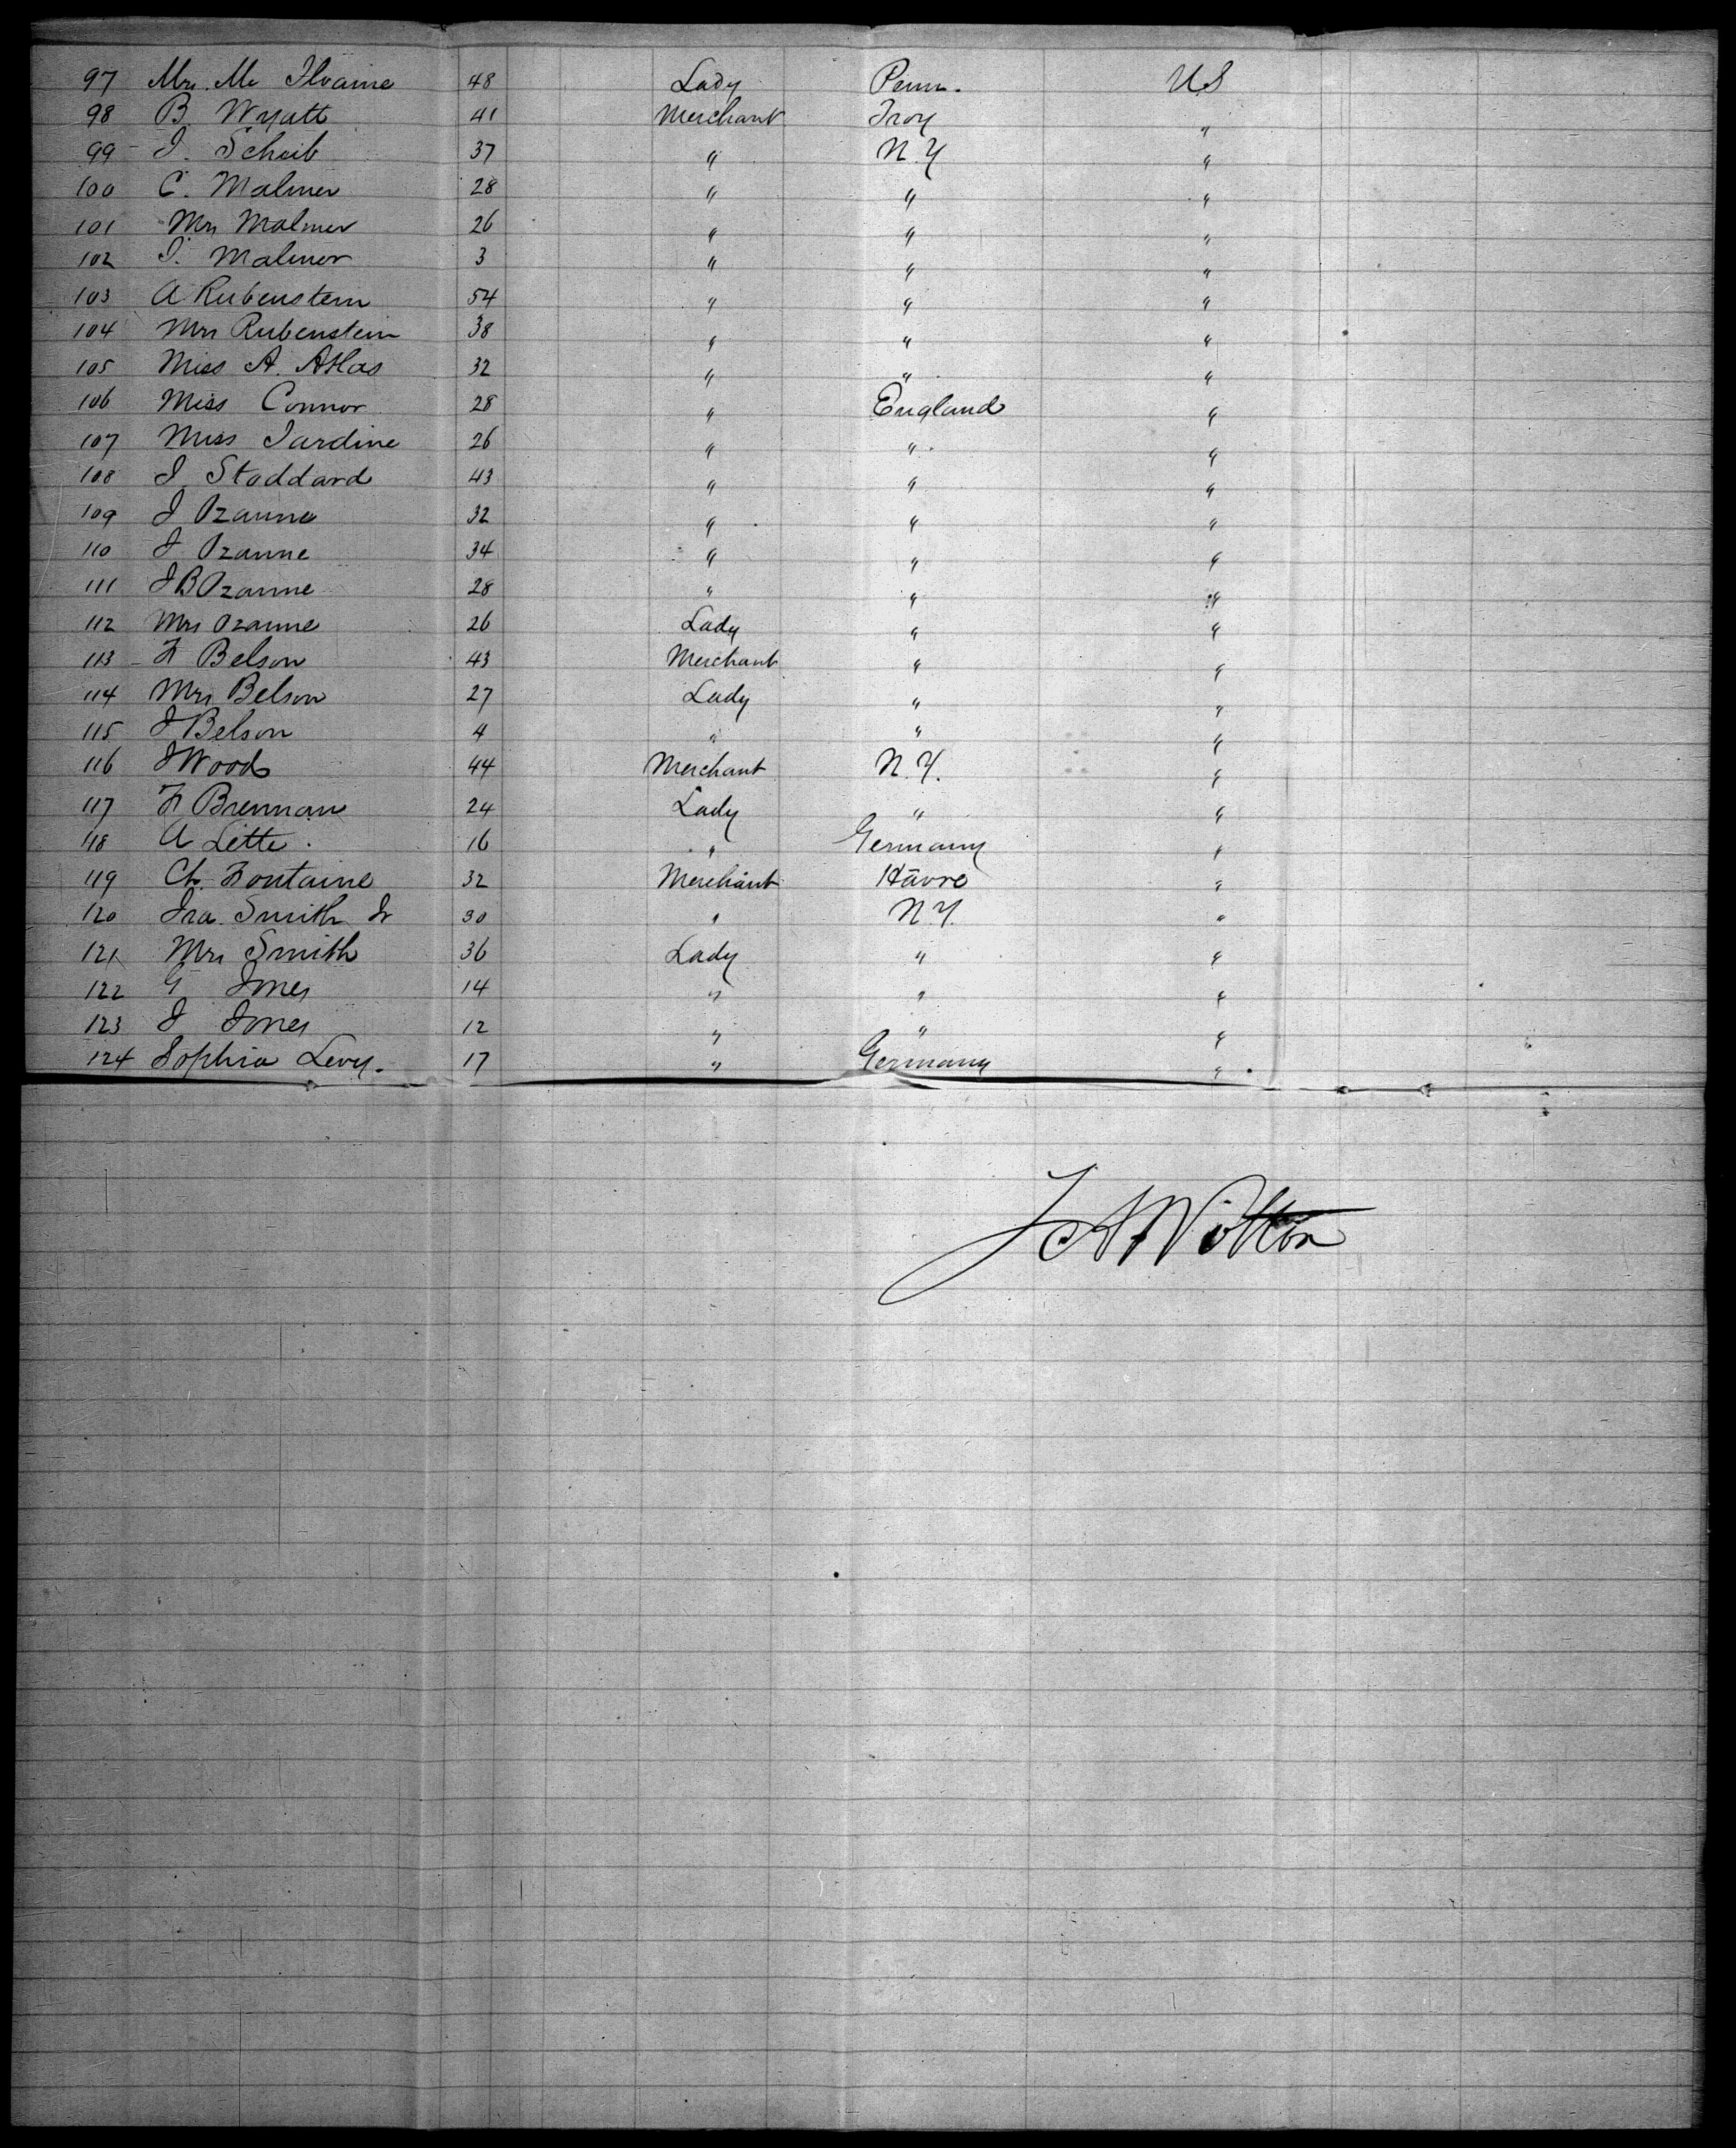 97 Mrs. Mc Ilvaine 48 Lady Penn. U S
98 B. Wyatt 41 Merchant Troy "
99 I. Scheib 37 " N. Y "
100 C. Malmer 28 " " "
101 Mrs Malmer 26 " " "
102 I. Malmer 3 " " "
103 A Rubenstein 54 " " "
104 Mrs Rubenstein 38 " " "
105 Miss A. Atlas 32 " " "
106 Miss Connor 28 " England "
107 Miss Jardine 26 " " "
108 J Stoddard 43 " " "
109 J Ozanne 32 " " "
110 J Ozanne 34 " " "
111 J B Ozanne 28 " " "
112 Mrs Ozanne 26 Lady " "
113 F Belson 43 Merchant " "
114 Mrs Belson 27 Lady " "
115 J Belson 4 " " "
116 J Wood 44 Merchant N. Y. "
117 F Brennan 24 Lady " "
118 A Litte . 16 " Germany "
119 Ch. Fontaine 32 Merchant Hâvre "
120 Ira Smith Jr 30 " N Y. "
121 Mrs Smith 36 Lady " "
122 G Jones 14 " " "
123 J Jones 12 " " "
124 Sophia Levy. 17 " Germany "